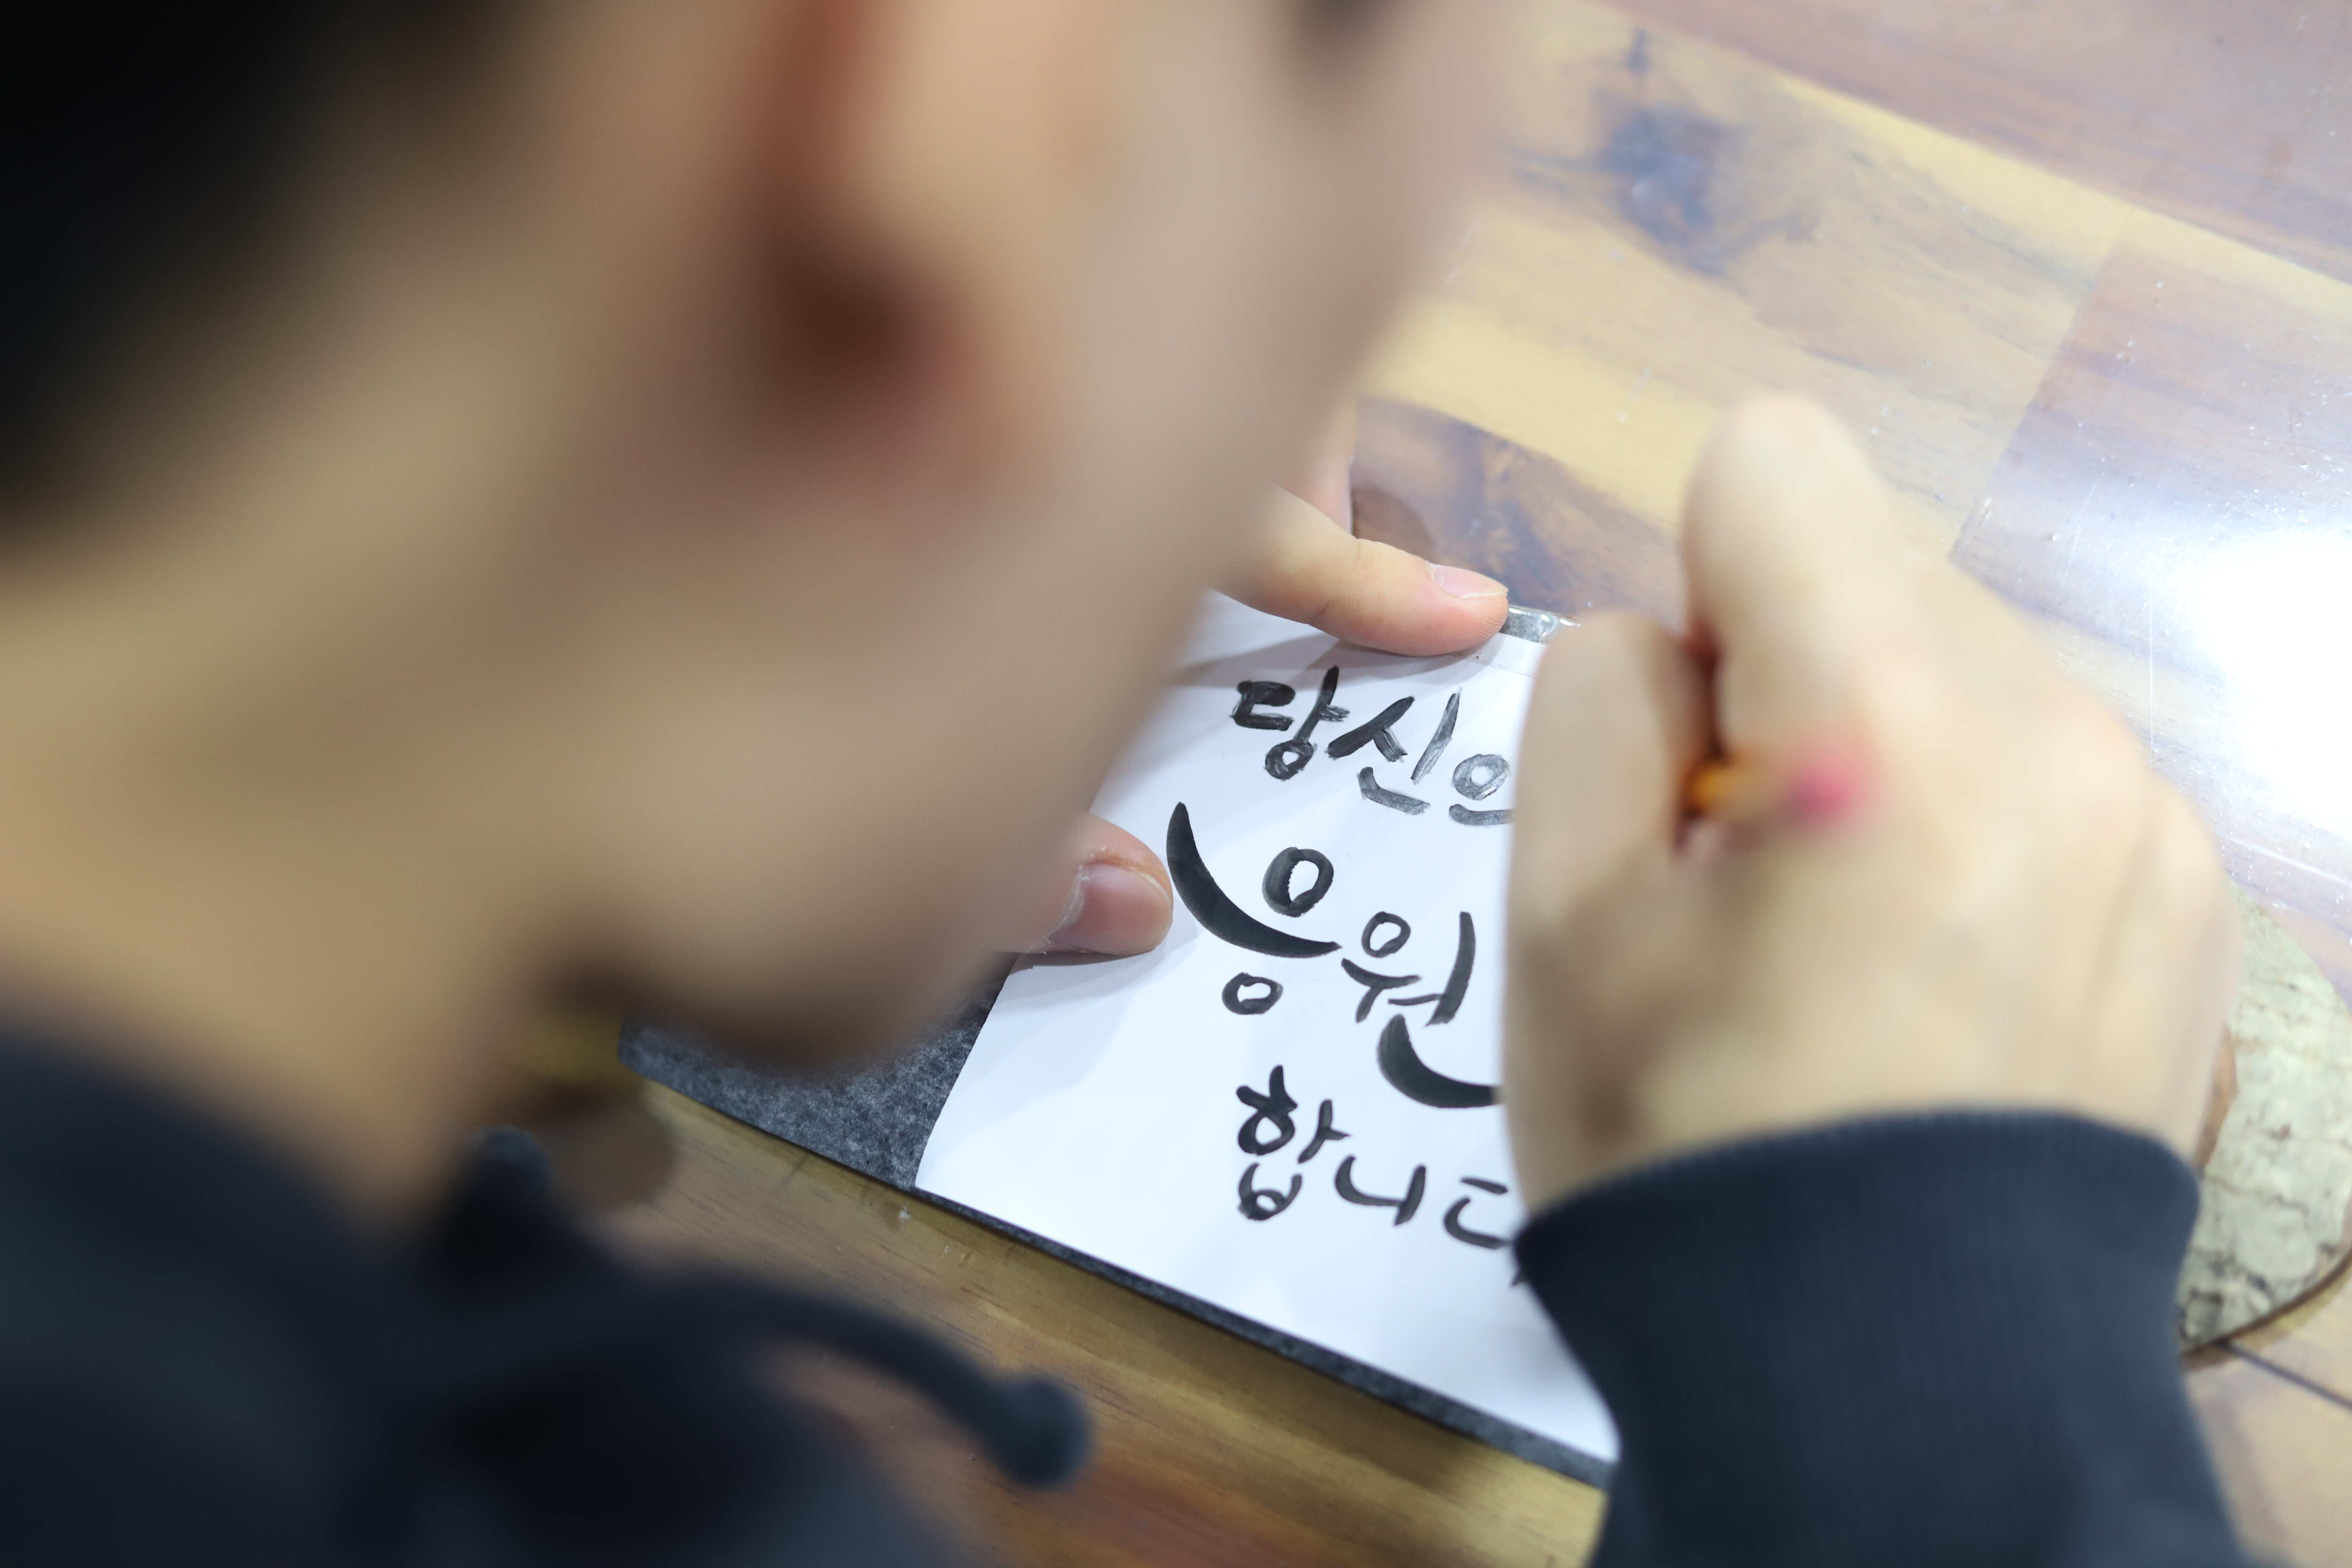 당신으
응원
합니다